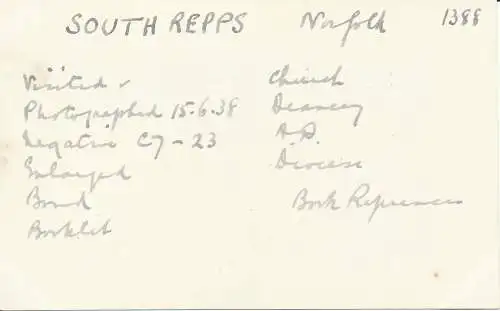 SOUTH REPPS Norfolk 1388
Visited ✓
Photographed 15.6.38
Negative C7-23
Enlarged
Bound
Booklet
Church
Deanery
A.D.
Diocese
Book References